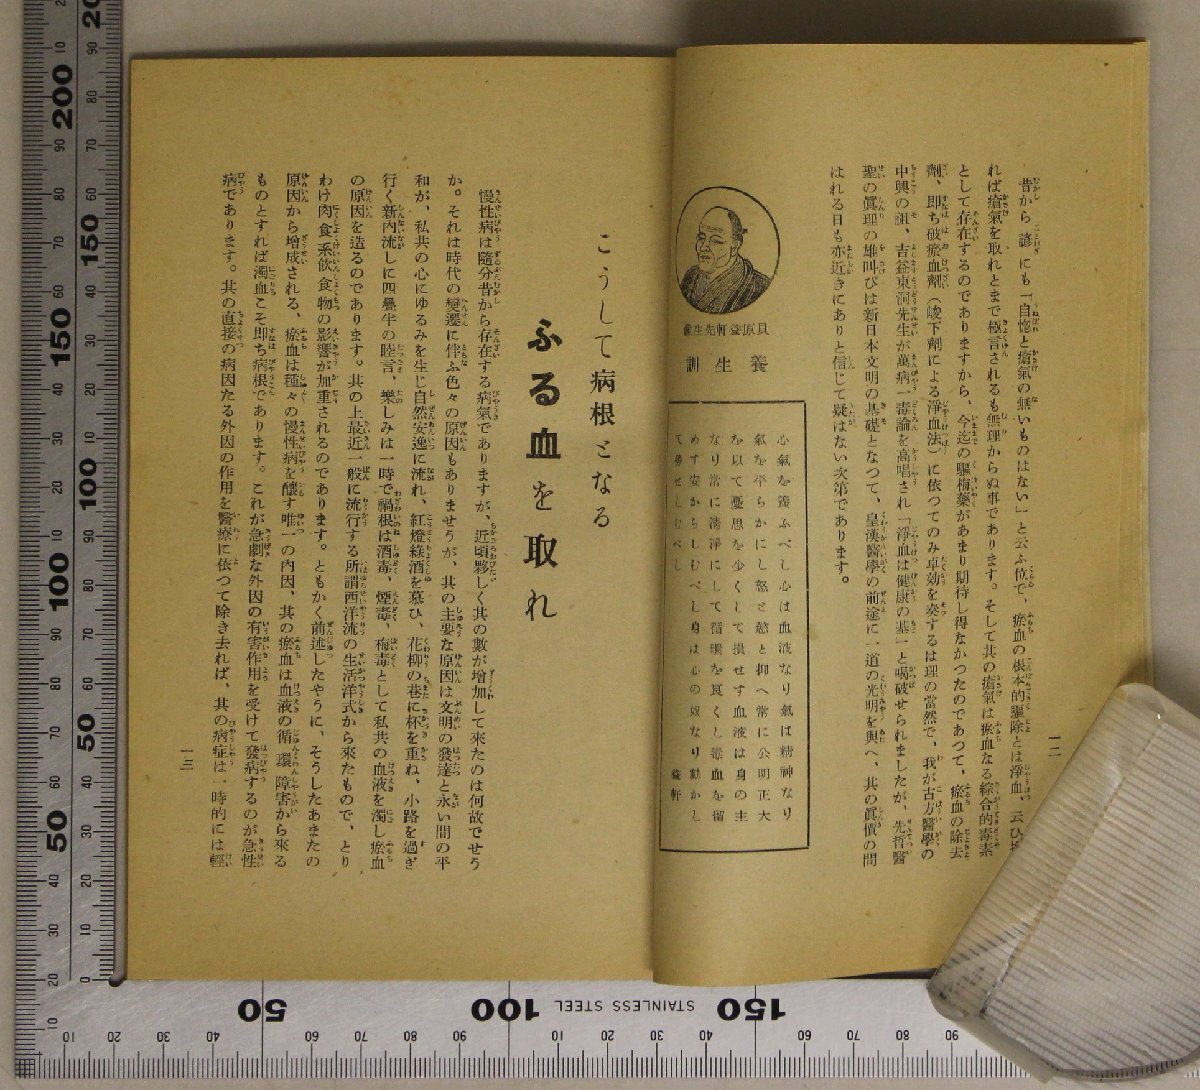 昔から諺にも「自惚と瘡氣の無いものはない」と云ふ位で、瘀血の根本的驅除とは淨血、云ひ
れば瘡氣を取れとまで極言されるも無理からぬ事であります。そして其の瘡氣は瘀血なる綜合的毒素
として存在するのでありますから、今迄の驅梅藥があまり期待し得なかつたのであつて、瘀血の除去
劑、即ち破瘀血劑（峻下劑による淨血法）に依つてのみ卓効を奏するは理の當然で、我が古方醫學の
中興の祖、吉益東洞先生が萬病一毒論を高唱され「淨血は健康の基」と喝破せられましたが、先哲醫
聖の眞理の雄叫びは新日本文明の基礎となつて、皇漢醫學の前途に一道の光明を與へ、其の眞價の問
はれる日も亦近きにありと信じて疑はない次第であります。
一二
貝原益軒先生像
養生訓
心氣を養ふべし心は血液なり氣は精神なり
氣を平らかにし怒と慾と抑へ常に公明正大
を以て憂思を少くして損せず血液は身の主
なり常に淸淨にして循環を良くし毒血を留
めず安からしむべし身は心の奴なり動かし
て勞せしむべし
益軒
こうして病根となる
ふる血を取れ
慢性病は隨分昔から存在する病氣でありますが、近頃夥しく其の數が增加して來たのは何故でせう
か。それは時代の變遷に伴ふ色々の原因もありませうが、其の主要な原因は文明の發達と永い間の平
和が、私共の心にゆるみを生じ自然安逸に流れ、紅燈綠酒を慕ひ、花柳の巷に杯を重ね、小路を過ぎ
行く新内流しに四疊半の睦言、樂しみは一時で禍根は酒毒、煙毒、梅毒として私共の血液を濁し瘀血
の原因を造るのであります。其の上最近一般に流行する所謂西洋流の生活洋式から來たもので、とり
わけ肉食系飮食物の影響が加重されるのであります。ともかく前述したやうに、そうしたあまたの
原因から增成される、瘀血は種々の慢性病を釀す唯一の内因、其の瘀血は血液の循環障害から來る
ものとすれば濁血こそ即ち病根であります。これが急劇な外因の有害作用を受けて發病するのが急性
病であります。其の直接の病因たる外因の作用を醫療に依つて除き去れば、其の病症は一時的には輕
一三
STAINLESS STEEL
50
100
150
200